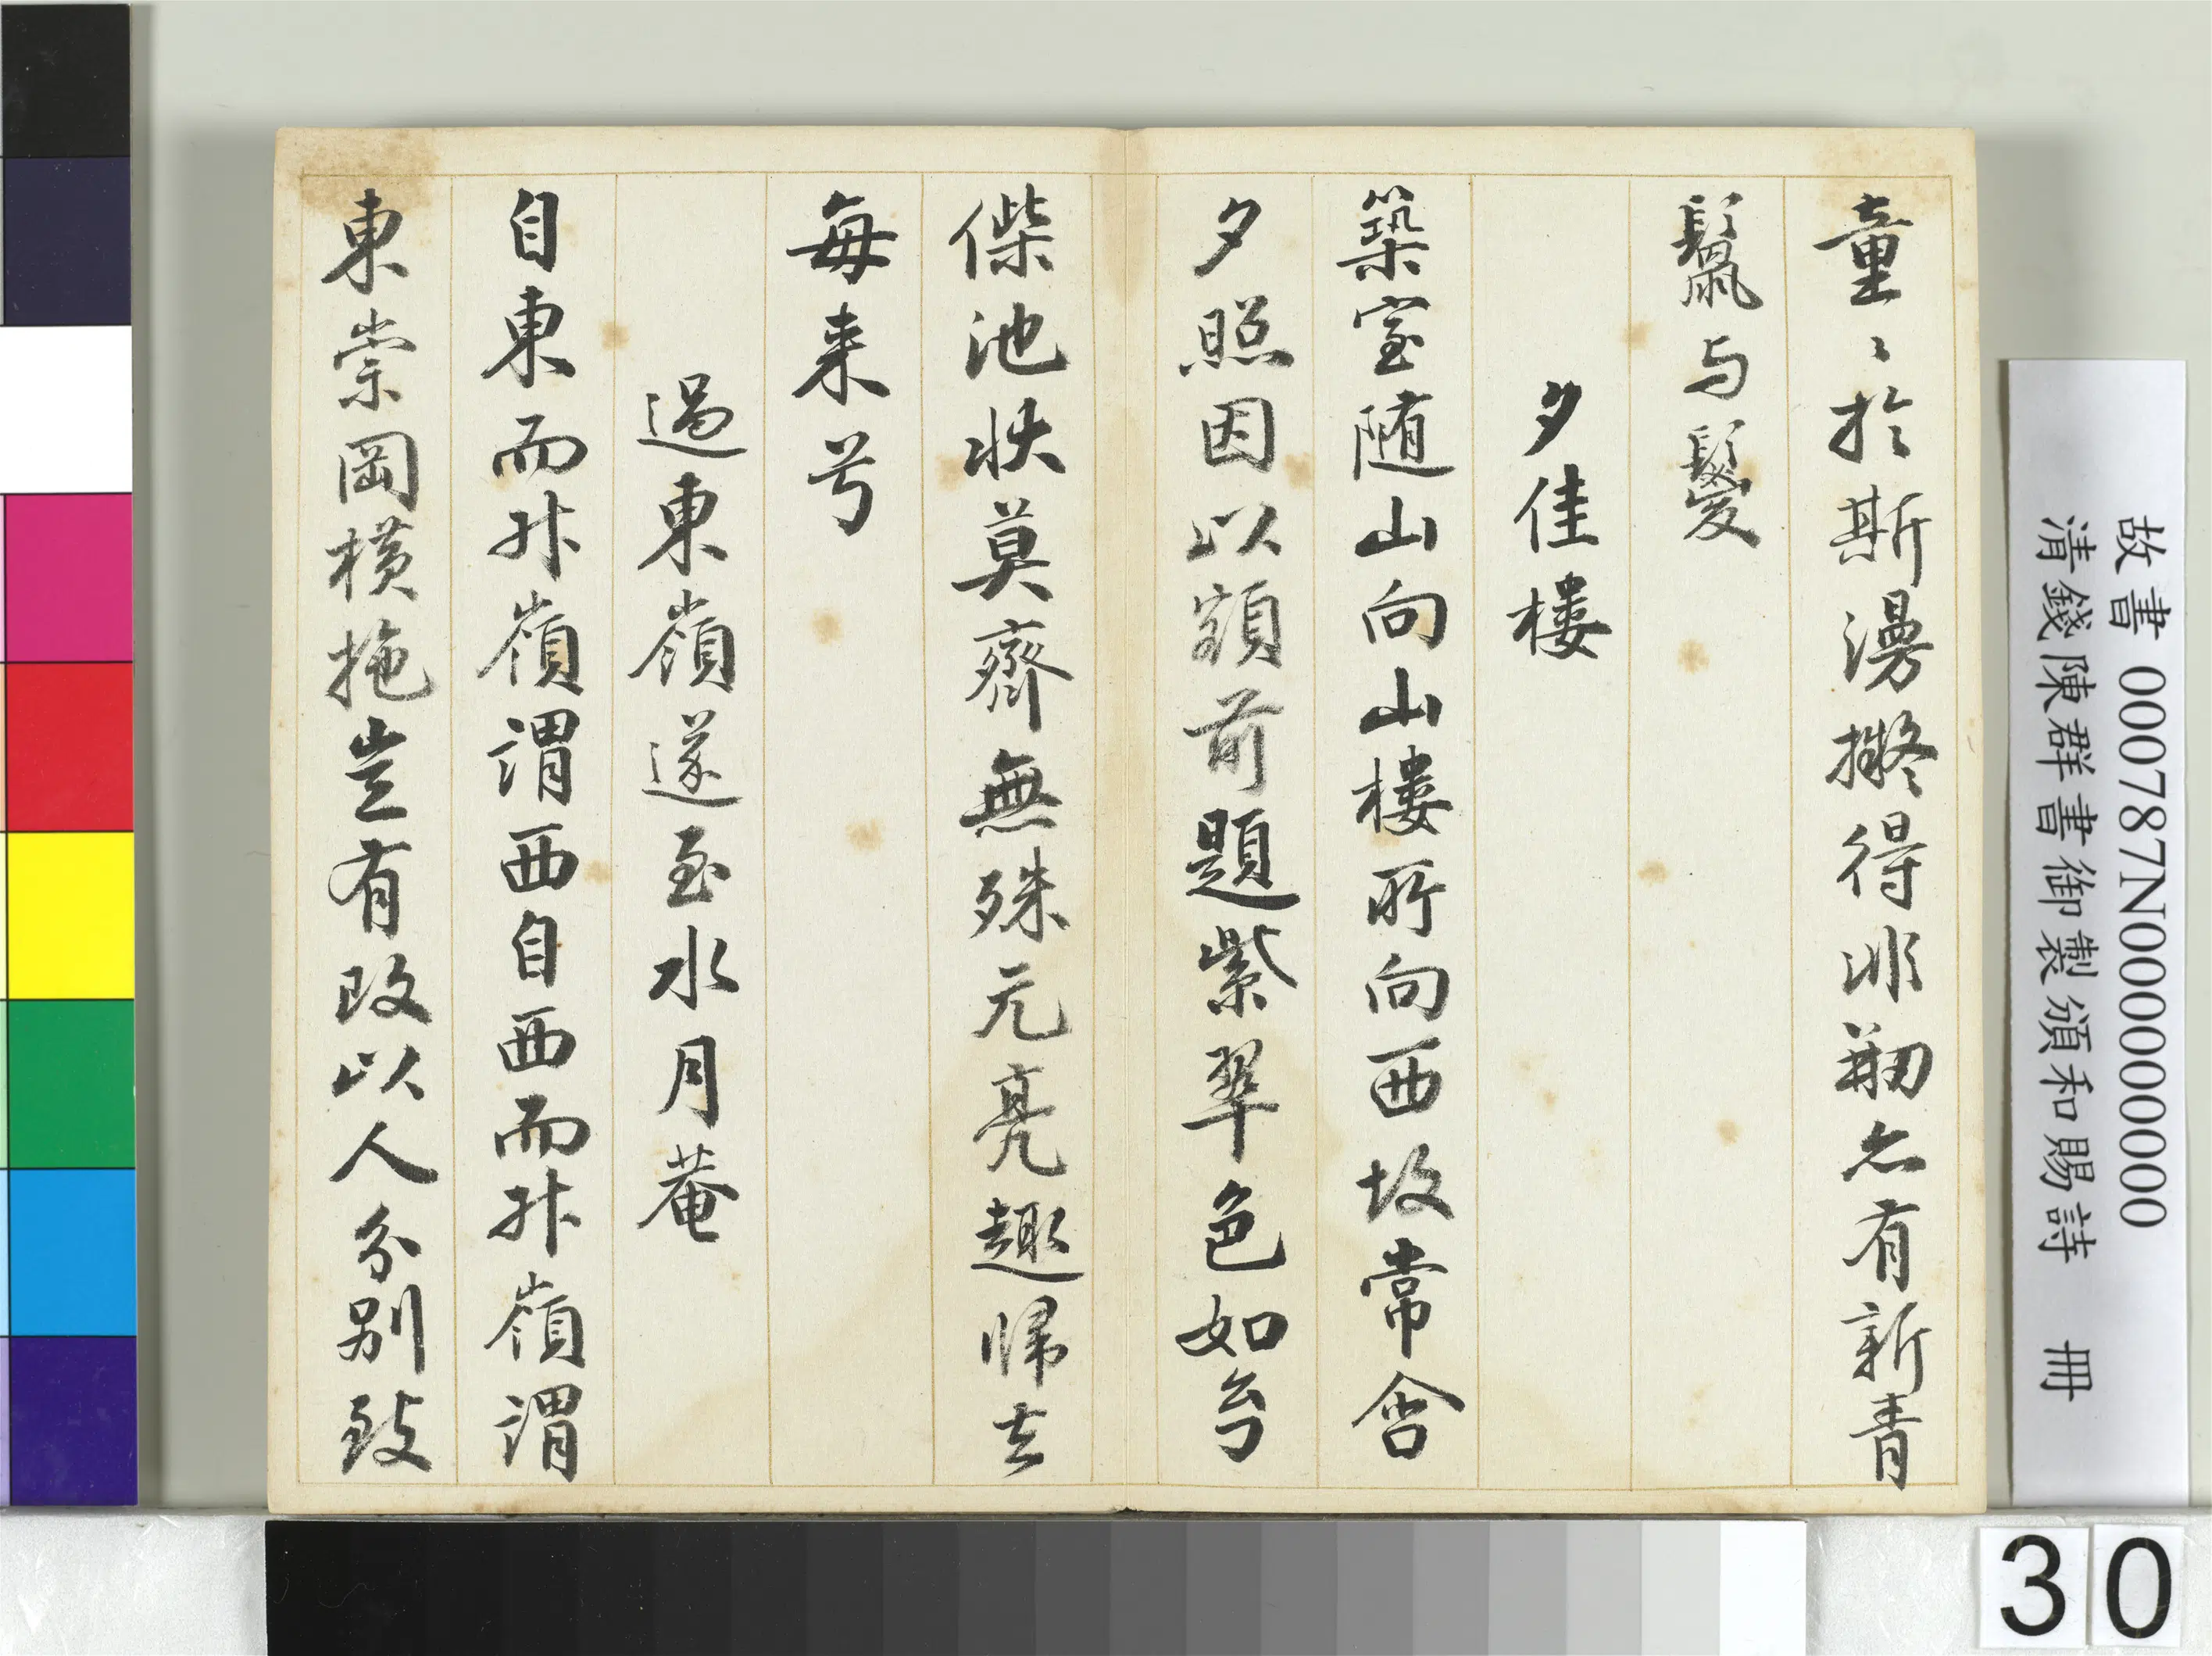 童〻於斯漫擬得非剏亦有新青
鬣与
夕佳樓
築室随山向山樓所向西故常含
夕照因以額前題紫翠色如
偨池狀莫齊無殊元亮趣歸去
每来兮
過東嶺遂至水月菴
自東而升嶺謂西自西而升嶺謂
東崇岡橫拖豈有改以人分別致
故書 000787N000000000
清錢陳群書御製頒和賜詩 冊
30